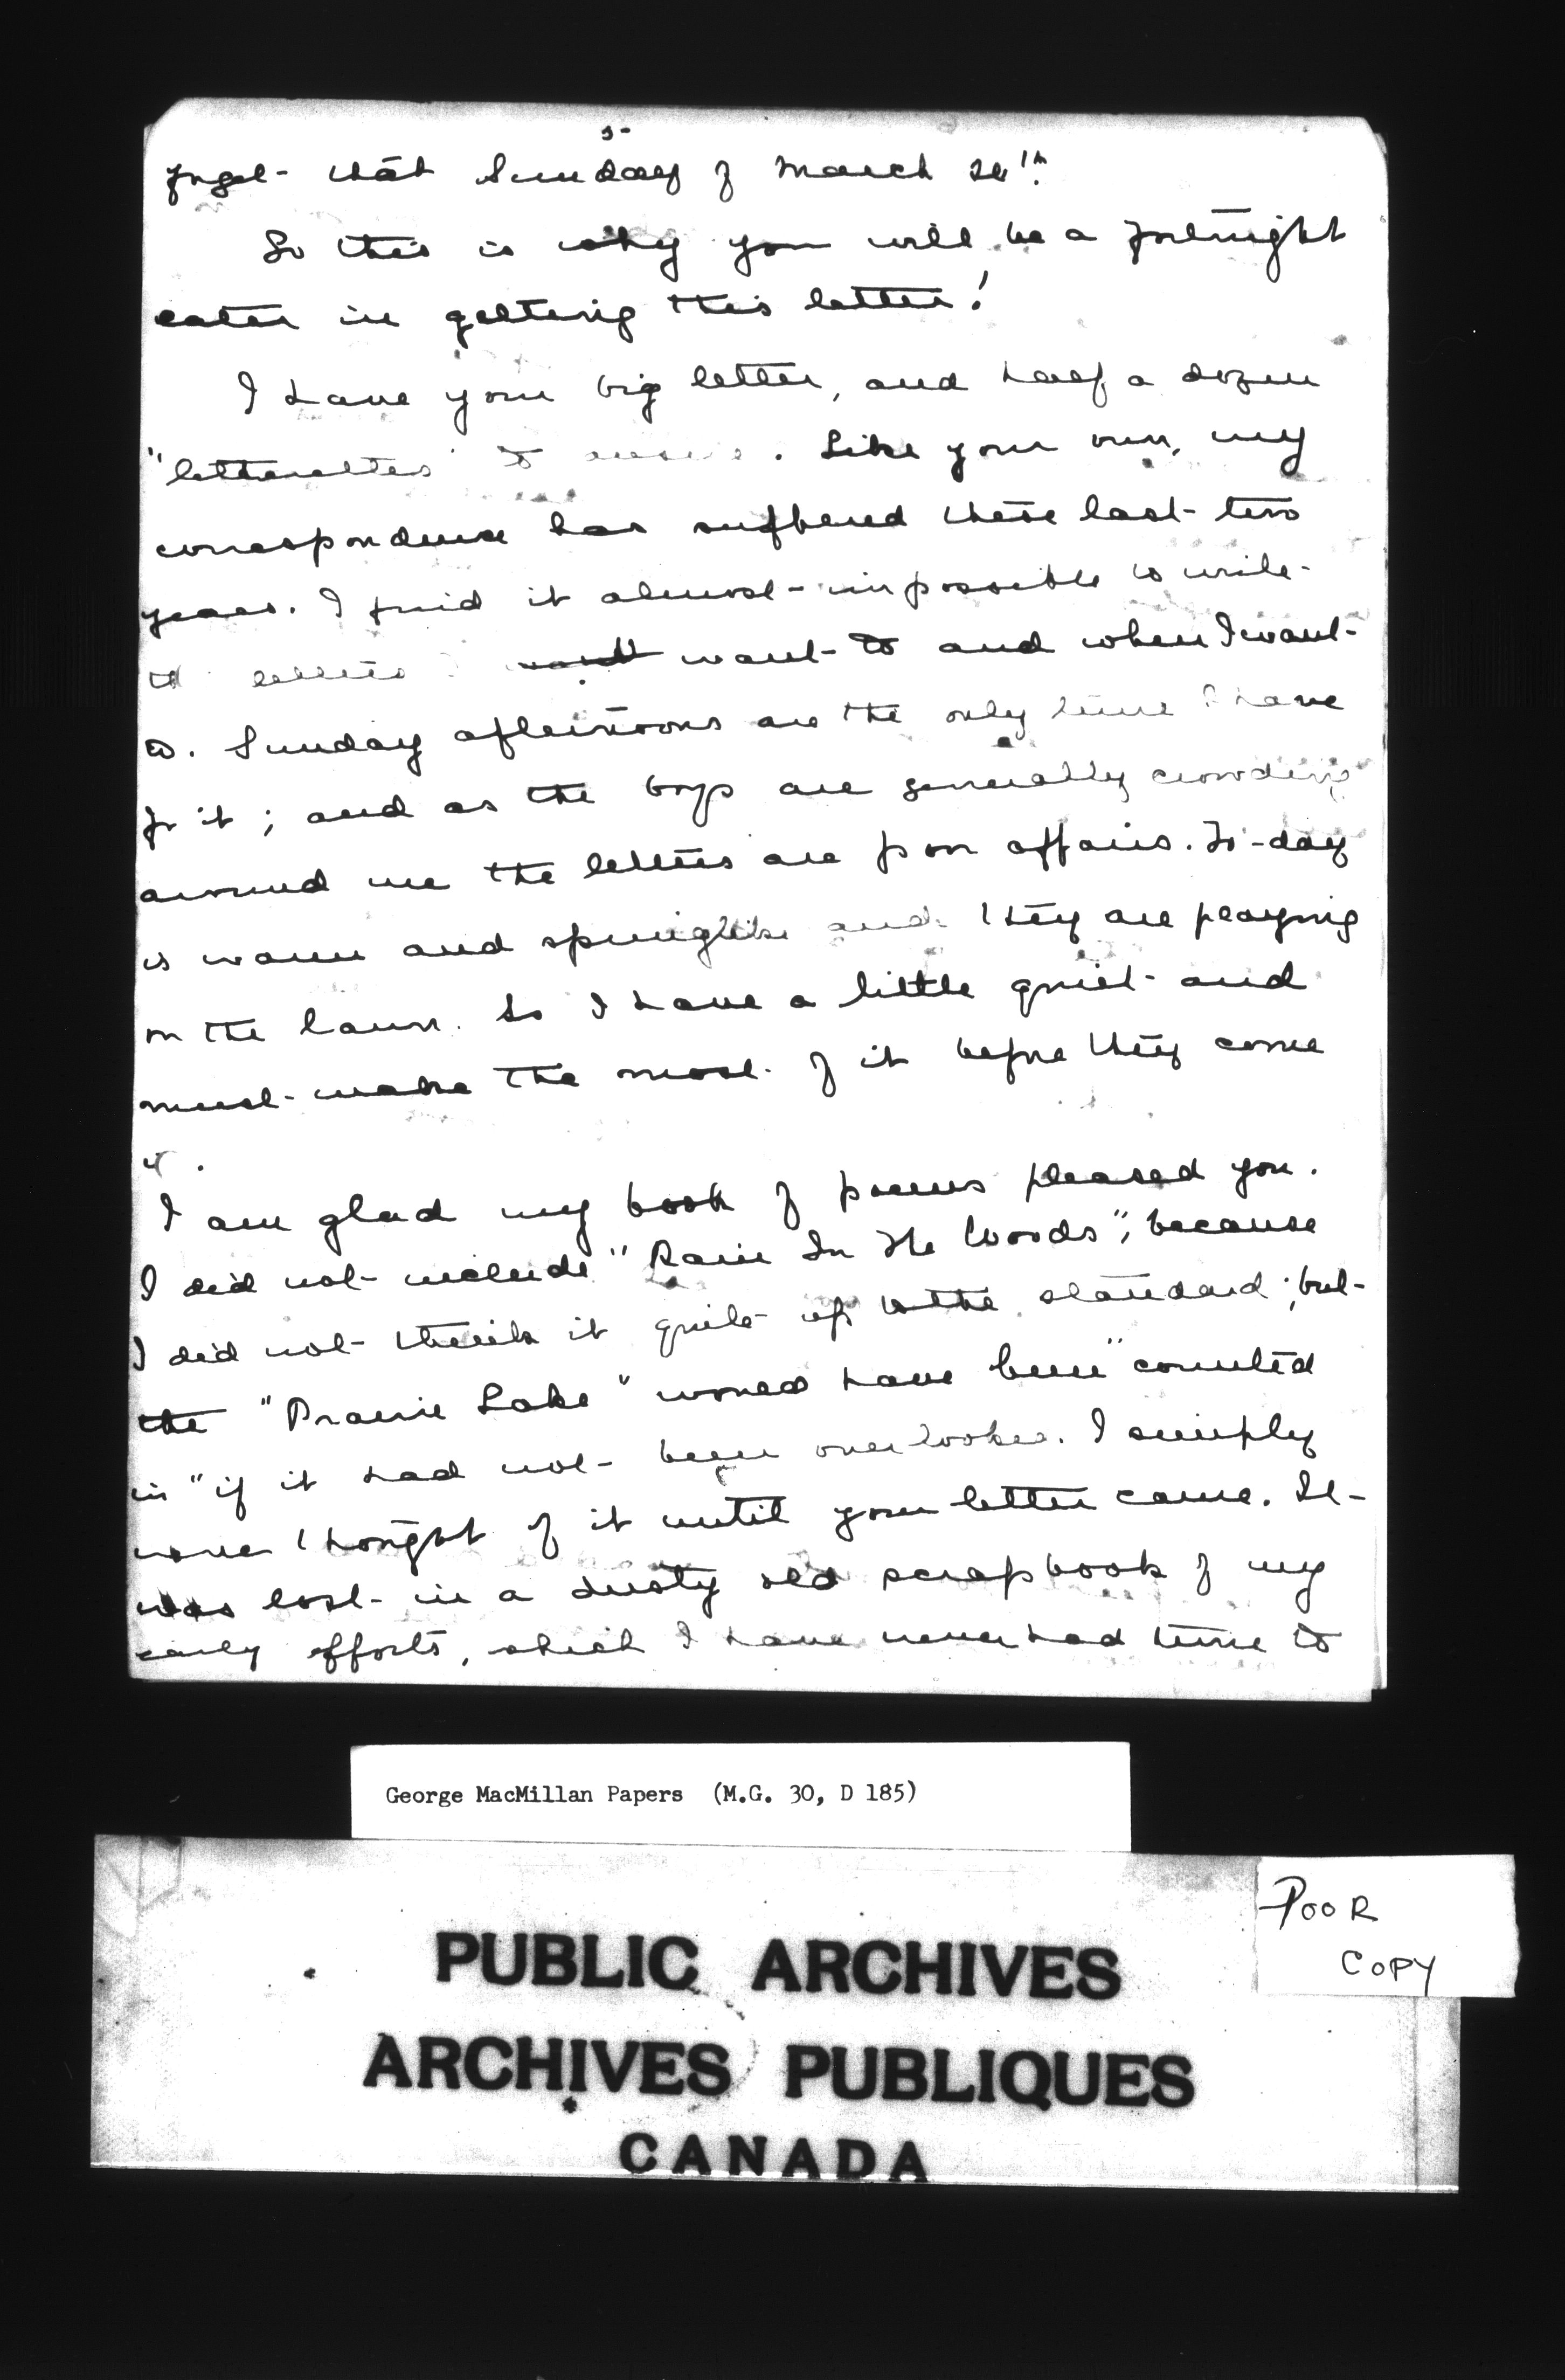 5-
forget that Sunday of March 24th.
So this is why you will be a fortnight
later in getting this letter!
I have your big letter, and half a dozen
"letterettes" to answer. Like your own, my
correspondence has suffered these last two
years. I find it almost impossible to write
the letters I want to and when I want
to. Sunday afternoons are the only time I have
for it; and as the boys are generally crowding
around me the letters are poor affairs. To-day
is warm and springlike and they are playing
on the lawn. So I have a little quiet and
must make the most of it before they come
in.
I am glad my book of poems pleased you.
I did not include "Rain In The Woods", because
I did not think it quite up to the standard; but
the "Prairie Lake" would have been "counted
in" if it had not been overlooked. I simply
never thought of it until your letter came. It
was lost in a dusty old scrapbook of my
early efforts, which I have never had time to
George MacMillan Papers (M.G. 30, D 185)
POOR
COPY
PUBLIC ARCHIVES
ARCHIVES PUBLIQUES
CANADA